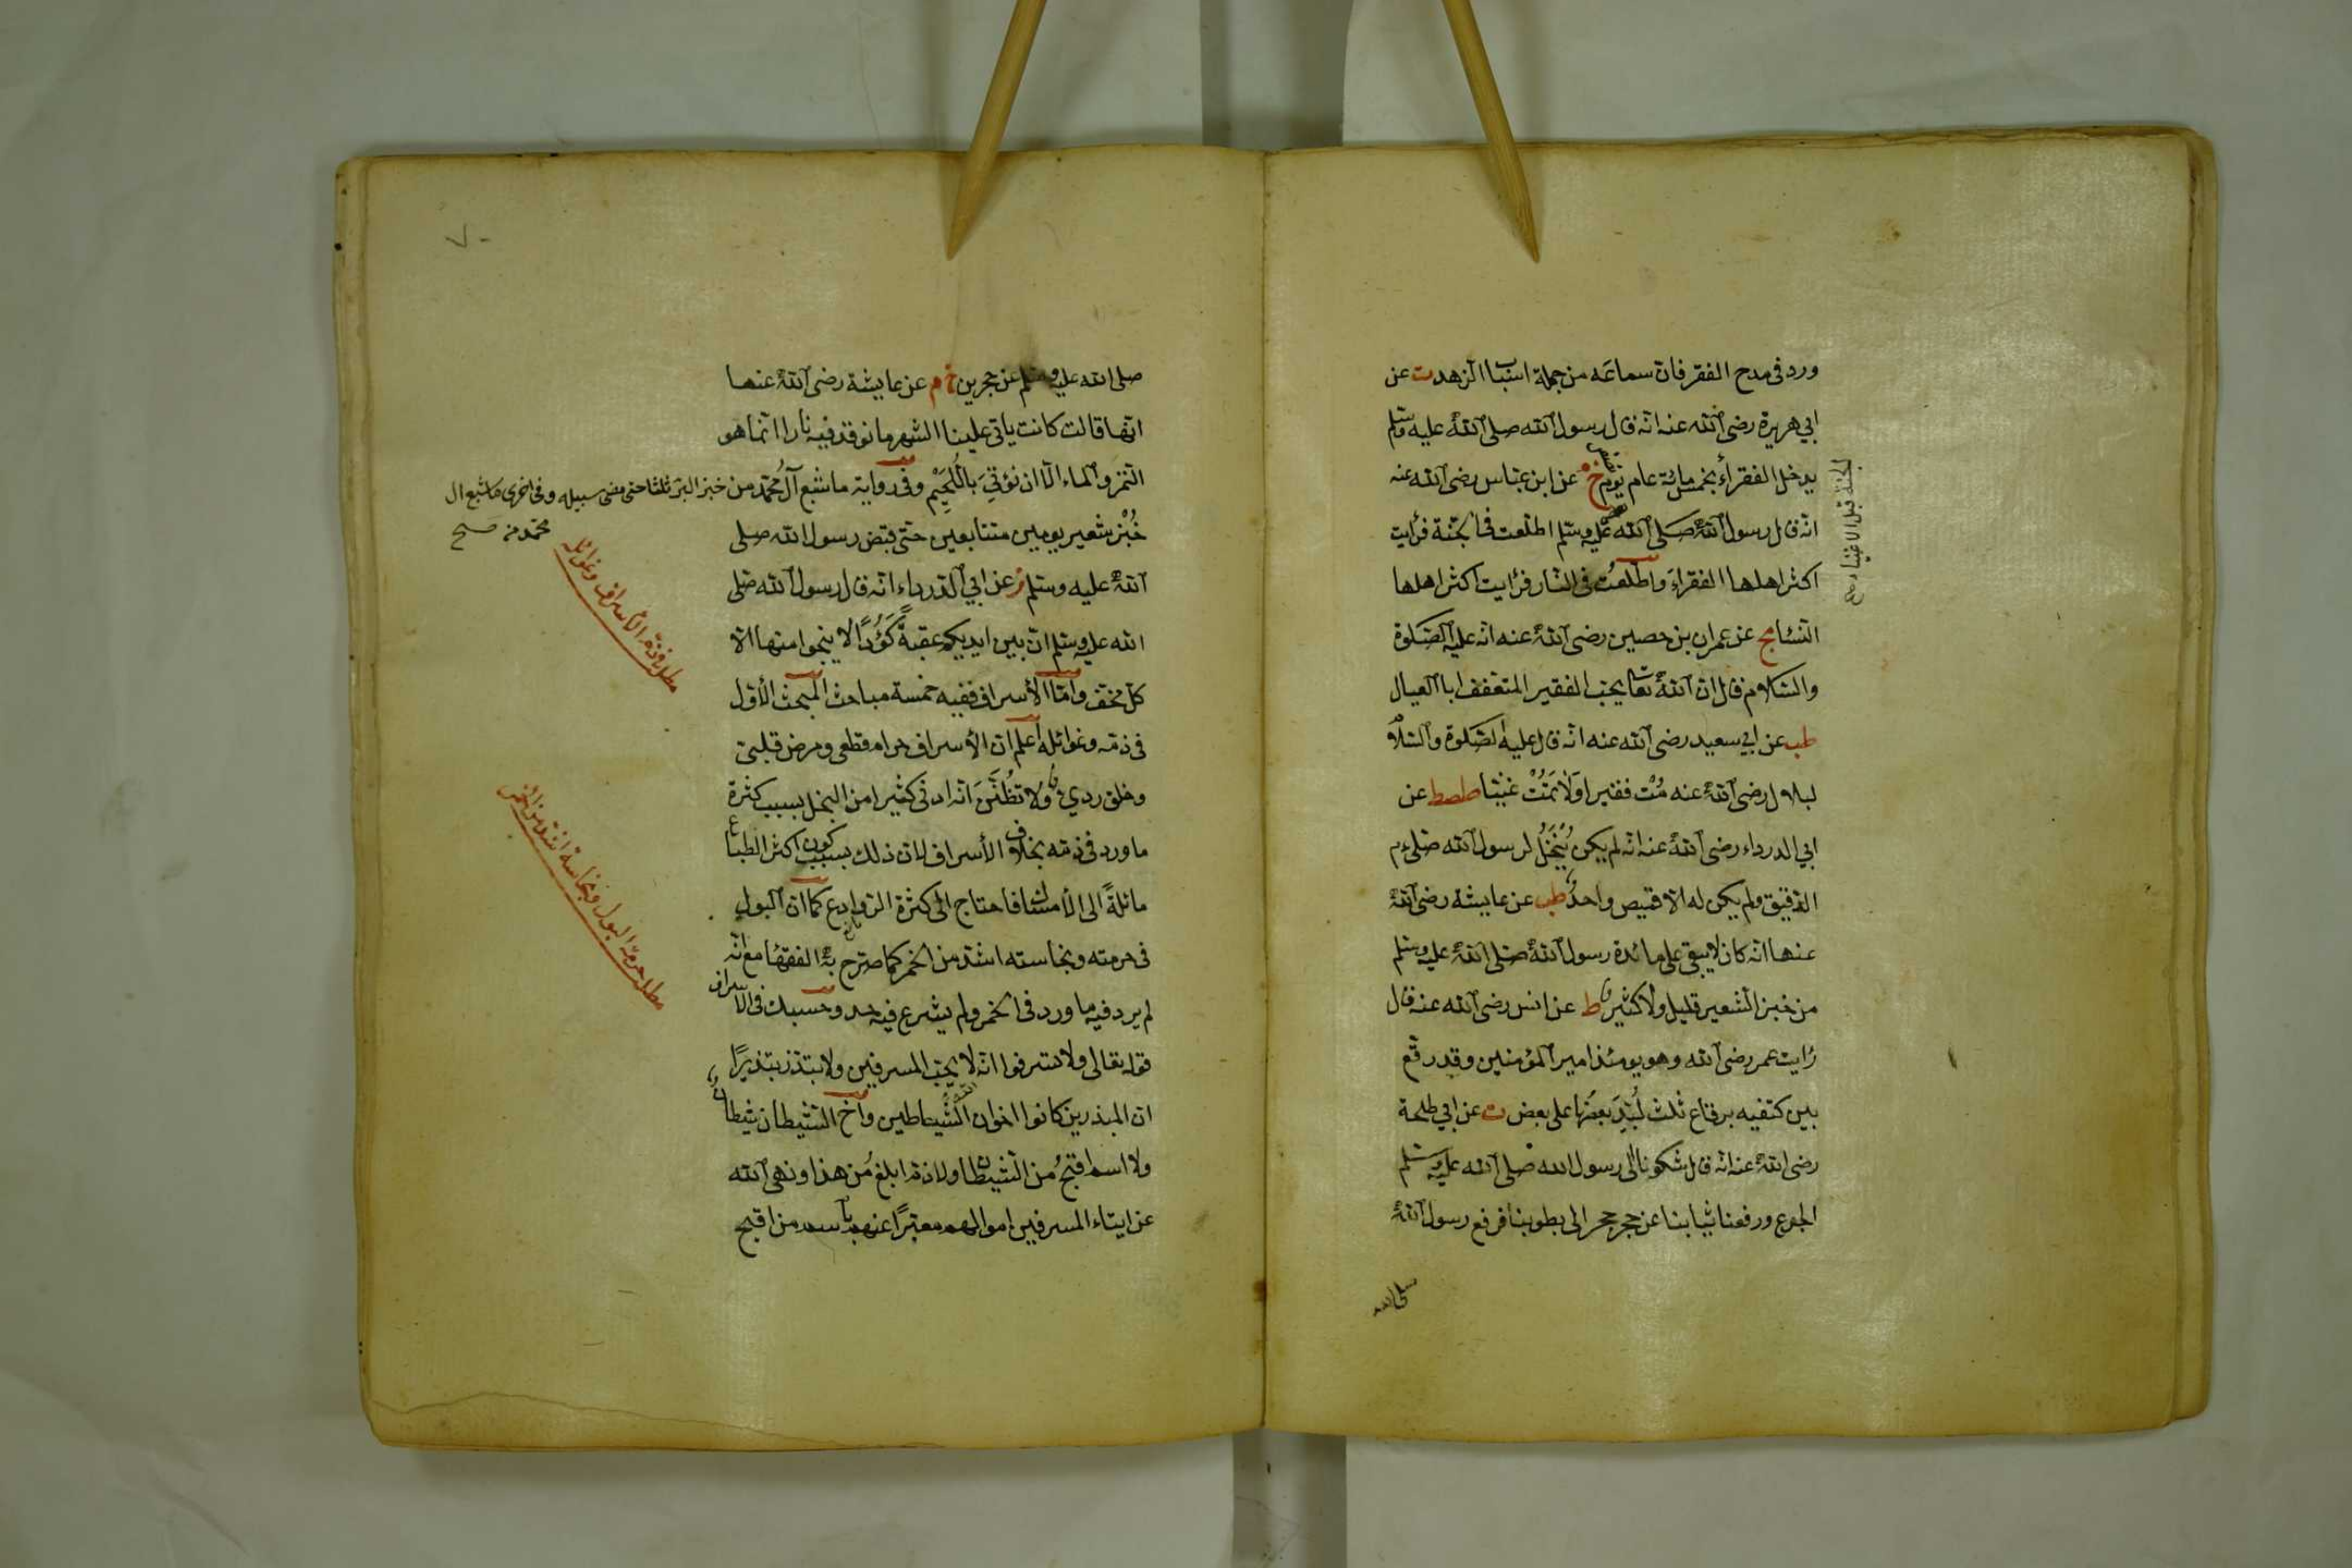 ورد فى مدح الفقر فان سماعه من جملة اسباب الزهد ت عن
ابي هريرة رضى الله عنه انه قال رسول الله صلى الله عليه وسلم
يدخل الفقراء بخمسمائة عام نصف يوم خ م عن ابن عباس رضى الله عنه
الجنة قبل الاغنياء صح
انه قال رسول الله صلى الله عليه وسلم اطلعت فى الجنة فرأيت
اكثر اهلها الفقراء واطلعت فى النار فرأيت اكثر اهلها
النساء مج عن عمران بن حصين رضى الله عنه انه عليه الصلوة
والسلام قال ان الله تعالى يحب الفقير المتعفف ابا العيال
طب عن ابي سعيد رضى الله عنه انه قال عليه الصلوة والسلام
لبلال رضى الله عنه مُتْ فقيرا ولا تَمُتْ غنيا طصط عن
ابي الدرداء رضى الله عنه انه لم يكن يُنْخَلُ لرسول الله صلىءم
الدقيق ولم يكن له الا قميص واحد طب عن عايشة رضى الله
عنها انه كان لا يبقى على مائدة رسول الله صلى الله عليه وسلم
من خبز الشعير قليل ولا كثير ط عن انس رضى الله عنه قال
رايت عمر رضى الله وهو يومئذ امير المؤمنين وقد رقع
بين كتفيه برقاع ثلث لُبِّدَ بعضها على بعض ت عن ابي طلحة
رضى الله عنه انه قال شكونا الى رسول الله صلى الله عليه وسلم
الجوع ورفعنا ثيابنا عن حجر حجر الى بطوننا فرفع رسول الله
صلى الله
٧٠
صلى الله عليه وسلم عن حجرين خ م عن عايشة رضى الله عنها
انها قالت كانت ياتى علينا الشهر ما نوقد فيه نارا انما هو
التمر والماء الا ان نؤتى باللُّحَيْم وفى رواية ما شبع آل محمد من خبز البر ثلثا حتى مضى سبيله وفى اخرى ما شبع ال
محمد من صح
خُبْز شعير يومين متتابعين حتى قبض رسول الله صلى
الله عليه وسلم ز عن ابي الدرداء انه قال رسول الله صلى
الله عليه وسلم ان بين ايديكم عقبةً كَؤُدًا لا ينجوا منها الا
كل مخف واما الأسراف ففيه خمسة مباحث المبحث الأول
فى ذمه وغوائله اعلم ان الأسراف حرام قطعى ومرض قلبى
وخلق ردى ولا تظُنَّنَ انه ادنى كثيرا من البخل بسبب كثرة
ما ورد فى ذمه بخلاف الأسراف لان ذلك بسبب كون اكثر الطباع
مائلةً الى الأمساك فاحتاج الى كثرة الروادع كما ان البول
فى حرمته ونجاسته اشد من الخمر كما صرح به الفقهاء مع انه
لم يرد فيه ما ورد فى الخمر ولم يشرع فيه حد وحسبك فى الاسراف
قوله تعالى ولا تسرفوا انه لا يحب المسرفين ولا تبذر تبذيرًا
ان المبذرين كانوا اخوان الشياطين واخ الشيطان شيطان
ولا اسم اقبح من الشيطان ولا ذم ابلغ من هذا ونهى الله
عن ايتاء المسرفين اموالهم معبرًا عنهم باسم من اقبح
مطلب فى ذم الأسراف وغوائله
مطلب حرمة البول ونجاسة اشد من الخمر